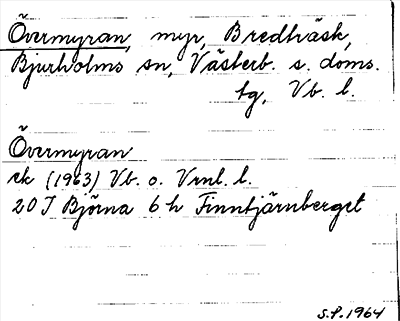 Övermyran, myr, Bredträsk,
Bjurholms sn, Västerb. s. doms.
tg, Vb. l.
Övermyran
ek (1963) Vb. o. Vrnl. l.
20 J Björna 6 h Finntjärnberget
S.P. 1964